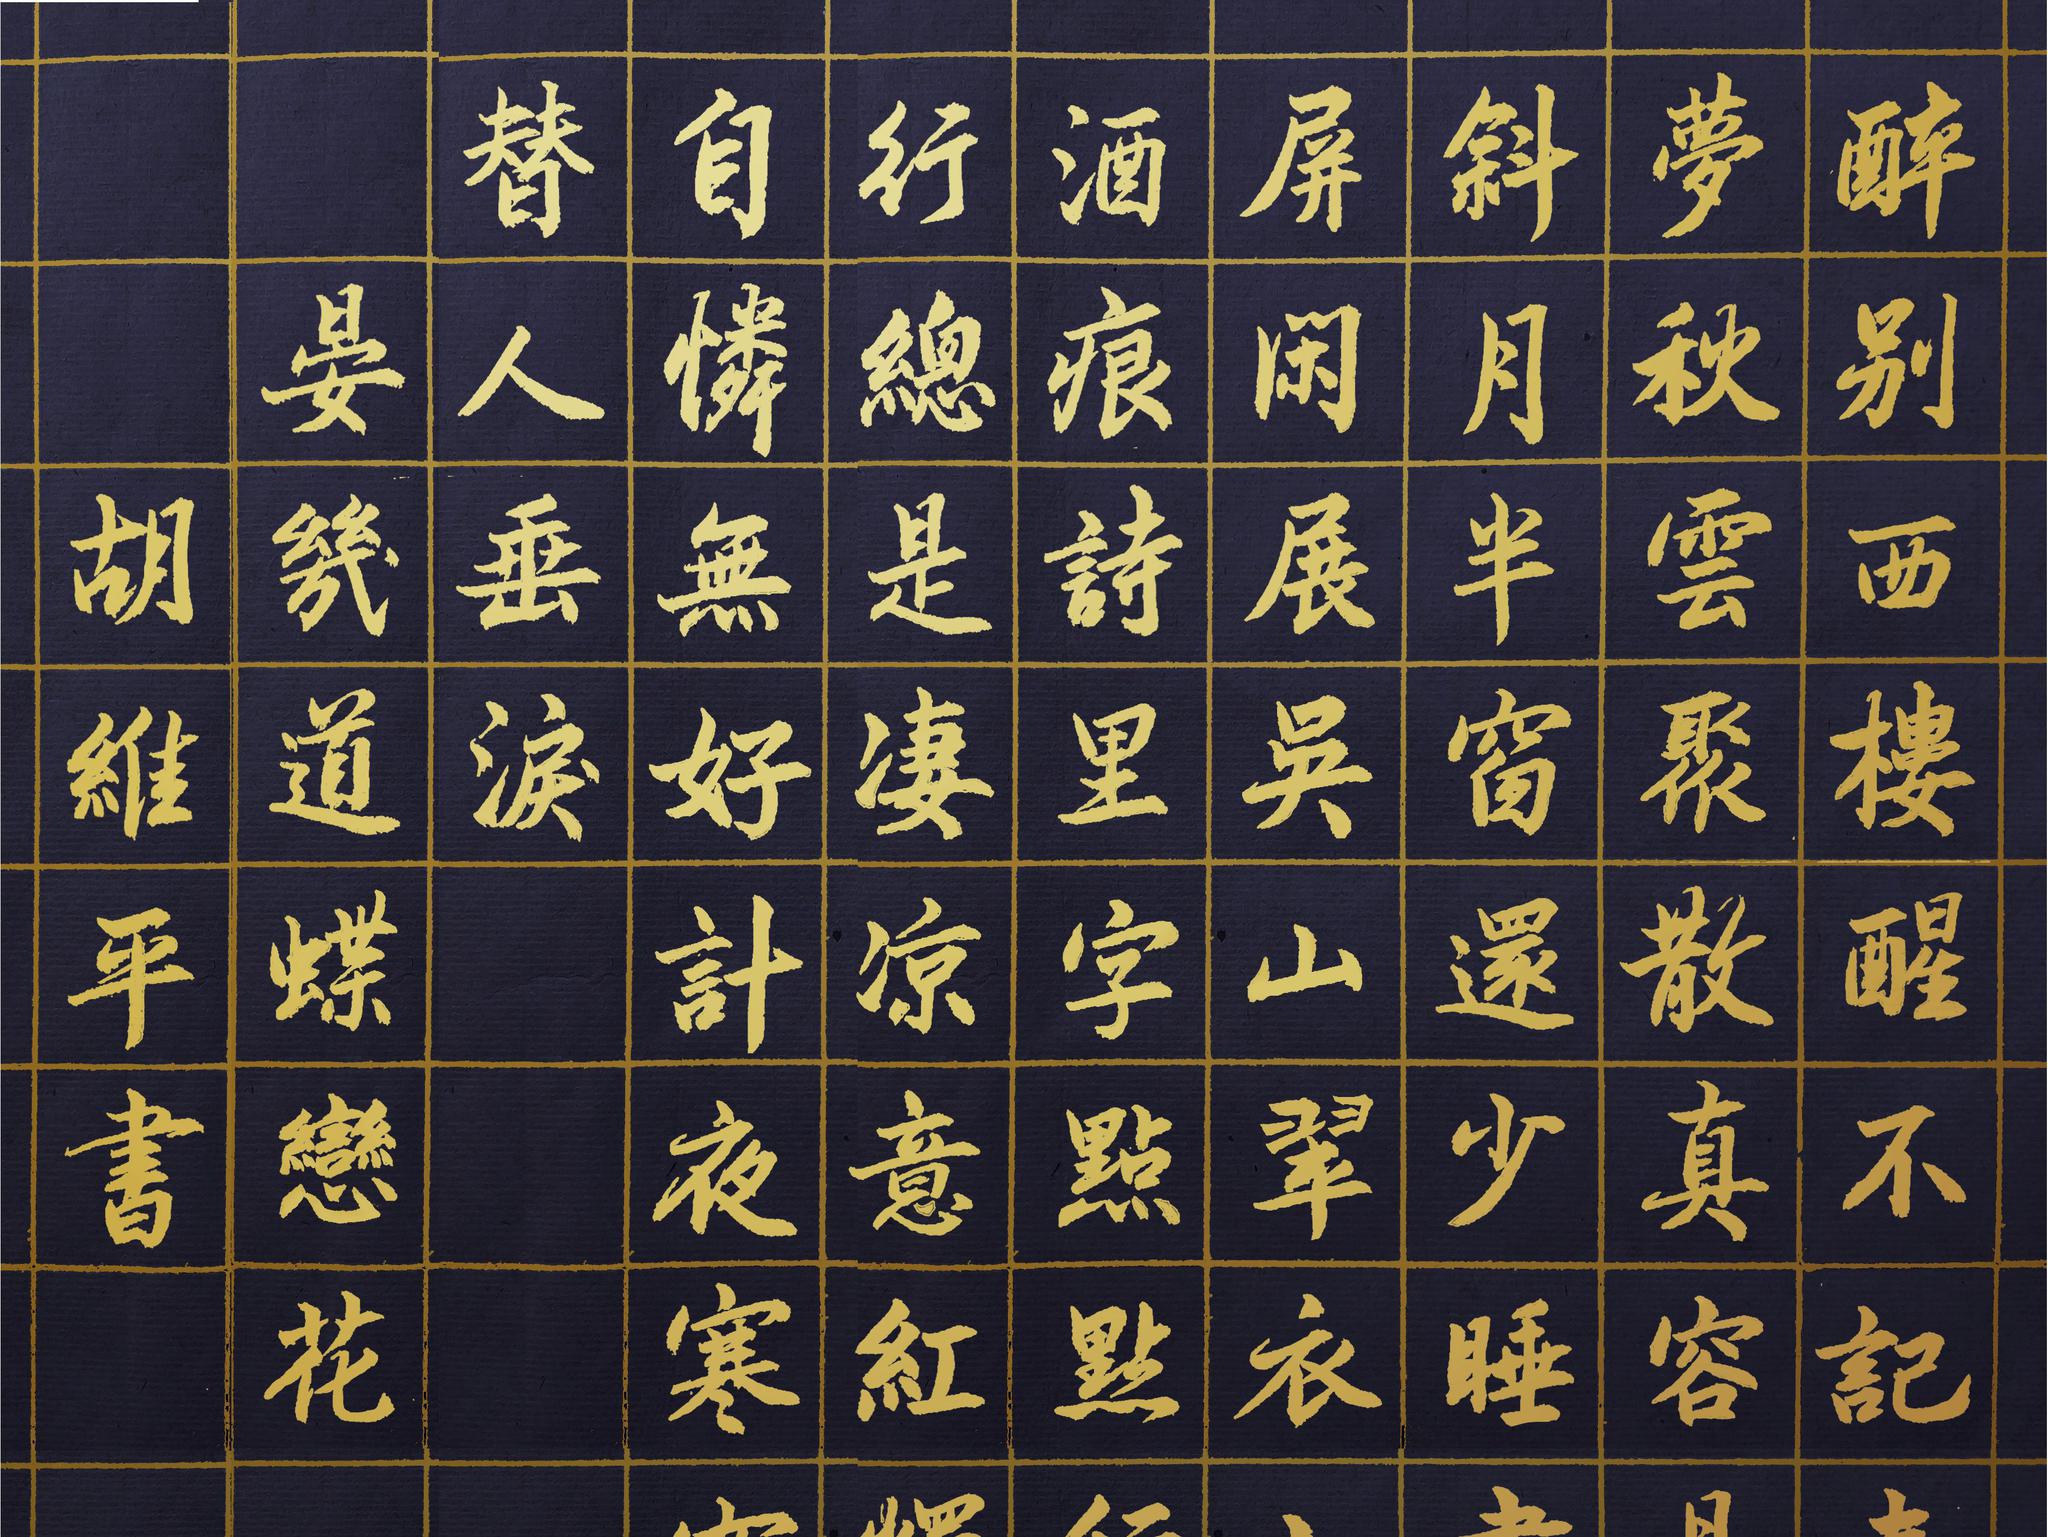 醉别西樓醒不記
夢秋雲聚散真容
斜月半窗還少睡
屏閑展吳山翠衣
酒痕詩里字點點
行總是凄凉意紅
自憐無好計夜寒
替人垂淚
晏幾道蝶戀花
胡維平書